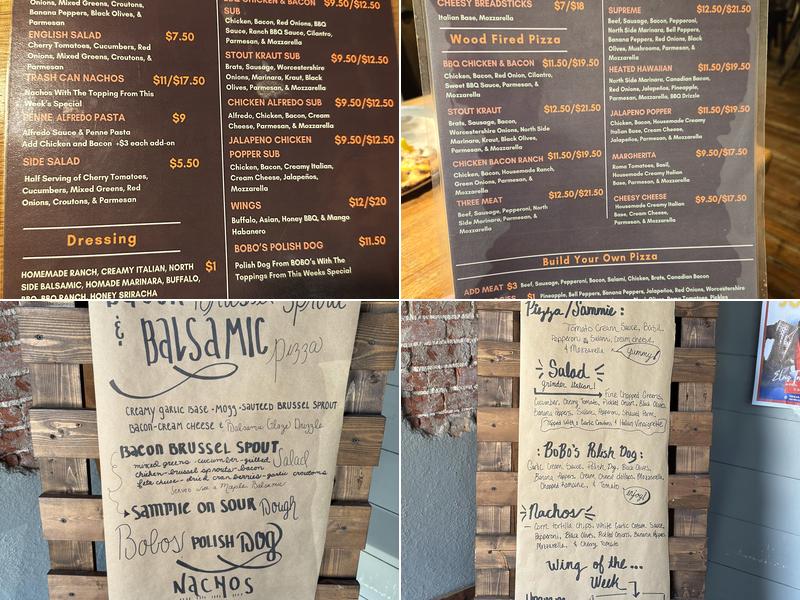 Onions, Mixed Greens, Croutons,
Banana Peppers, Black Olives, &
Parmesan
ENGLISH SALAD $7.50
Cherry Tomatoes, Cucumbers, Red
Onions, Mixed Greens, Croutons, &
Parmesan
TRASH CAN NACHOS $11/$17.50
Nachos With The Topping From This
Week's Special
PENNE ALFREDO PASTA $9
Alfredo Sauce & Penne Pasta
Add Chicken and Bacon +$3 each add-on
SIDE SALAD $5.50
Half Serving of Cherry Tomatoes,
Cucumbers, Mixed Greens, Red
Onions, Croutons, & Parmesan
Dressing
HOMEMADE RANCH, CREAMY ITALIAN, NORTH $1
SIDE BALSAMIC, HOMADE MARINARA, BUFFALO,
BBQ, BBQ RANCH, HONEY SRIRACHA
BBQ CHICKEN & BACON $9.50/$12.50
SUB
Chicken, Bacon, Red Onions, BBQ
Sauce, Ranch BBQ Sauce, Cilantro,
Parmesan, & Mozzarella
STOUT KRAUT SUB $9.50/$12.50
Brats, Sausage, Worcestershire
Onions, Marinara, Kraut, Black
Olives, Parmesan, & Mozzarella
CHICKEN ALFREDO SUB $9.50/$12.50
Alfredo, Chicken, Bacon, Cream
Cheese, Parmesan, & Mozzarella
JALAPENO CHICKEN $9.50/$12.50
POPPER SUB
Chicken, Bacon, Creamy Italian,
Cream Cheese, Jalapeños,
Mozzarella
WINGS $12/$20
Buffalo, Asian, Honey BBQ, & Mango
Habanero
BOBO'S POLISH DOG $11.50
Polish Dog From BOBO's With The
Toppings From This Weeks Special
CHEESY BREADSTICKS $7/$18
Italian Base, Mozzarella
Wood Fired Pizza
BBQ CHICKEN & BACON $11.50/$19.50
Chicken, Bacon, Red Onion, Cilantro,
Sweet BBQ Sauce, Parmesan, &
Mozzarella
STOUT KRAUT $12.50/$21.50
Brats, Sausage, Bacon,
Worcestershire Onions, North Side
Marinara, Kraut, Black Olives,
Parmesan, & Mozzarella
CHICKEN BACON RANCH $11.50/$19.50
Chicken, Bacon, Housemade Ranch,
Green Onions, Parmesan, &
Mozzarella
THREE MEAT $12.50/$21.50
Beef, Sausage, Pepperoni, North
Side Marinara, Parmesan, &
Mozzarella
SUPREME $12.50/$21.50
Beef, Sausage, Bacon, Pepperoni,
North Side Marinara, Bell Peppers,
Banana Peppers, Red Onions, Black
Olives, Mushrooms, Parmesan, &
Mozzarella
HEATED HAWAIIAN $11.50/$19.50
North Side Marinara, Canadian Bacon,
Red Onions, Jalapeños, Pineapple,
Parmesan, Mozzarella, BBQ Drizzle
JALAPENO POPPER $11.50/$19.50
Chicken, Bacon, Housemade Creamy
Italian Base, Cream Cheese,
Jalapeños, Parmesan, & Mozzarella
MARGHERITA $9.50/$17.50
Roma Tomatoes, Basil,
Housemade Creamy Italian
Base, Parmesan, & Mozzarella
CHEESY CHEESE $9.50/$17.50
Housemade Creamy Italian
Base, Cream Cheese,
Parmesan, & Mozzarella
Build Your Own Pizza
ADD MEAT $3 Beef, Sausage, Pepperoni, Bacon, Salami, Chicken, Brats, Canadian Bacon
$1 Pineapple, Bell Peppers, Banana Peppers, Jalapeños, Red Onions, Worcestershire
BACON Brussel Sprout
& BALSAMIC pizza
CREAMY GARLIC BASE - MOZZ - SAUTEED BRUSSEL SPROUT
BACON - CREAM CHEESE & Balsamic Glaze Drizzle
BACON BRUSSEL SPOUT Salad
mixed greens - cucumber - grilled
chicken - brussel sprouts - bacon
feta cheese - dried cranberries - garlic croutons
Served with a Maple Balsamic
SAMMIE ON SOUR Dough
Bobos POLISH DOG
NACHOS
Pizza/Sammie:
Tomato Cream Sauce, Basil,
Pepperoni, Salami, Cream cheese,
& Mozzarella Yummy!
Salad
grinder Italian!
Fine Chopped Greens,
Cucumber, Cherry Tomato, Pickled Onion, Black Olives,
Banana Peppers, Salami, Pepperoni, Shaved Parm,
Topped with & Garlic Croutons & Italian Vinaigrette
: BoBo's Polish Dog :
Garlic Cream Sauce, Polish Dog, Black Olives,
Banana Peppers, Cream Cheese dollops, Mozzarella,
Chopped Romaine, & Tomato Enjoy!
Nachos
- Corn tortilla chips, White Garlic Cream Sauce,
Pepperoni, Black Olives, Pickled Onions, Banana Peppers,
Mozzarella, & Cherry Tomato
Wing of the...
Week